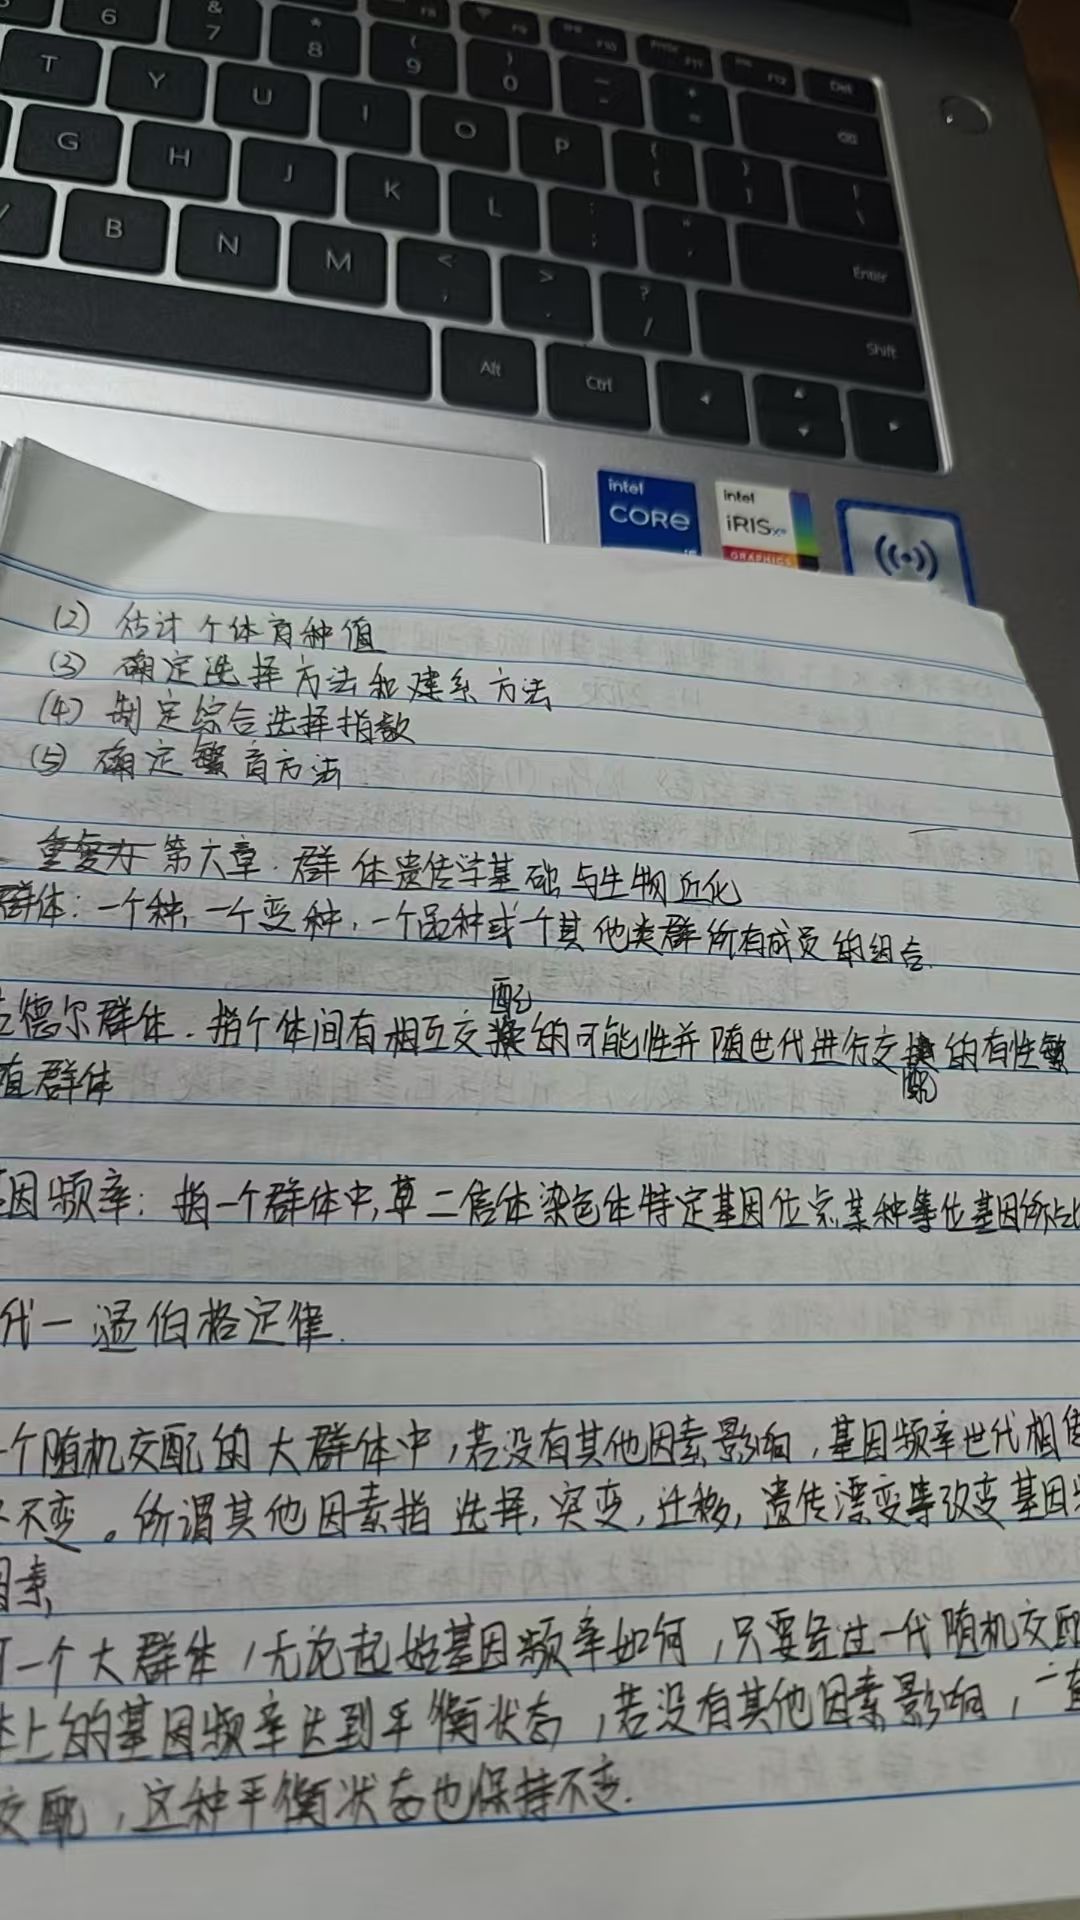 6
&
7
*
8
(
9
)
0
_
-
+
=
F8
F9
F10
F11
F12
Del
T
Y
U
I
O
P
{
[
}
]
|
\
G
H
J
K
L
:
;
"
'
Enter
B
N
M
<
,
>
.
?
/
Shift
Alt
Ctrl
intel
CORE
i5
intel
iRIS Xe
GRAPHICS
(2) 估计个体育种值
(3) 确定选择方法和建系方法
(4) 制定综合选择指数
(5) 确定繁育方法
第六章. 群体遗传学基础与生物近化
群体: 一个种, 一个变种, 一个品种或一个其他类群所有成员的组合.
德尔群体. 指个体间有相互交配的可能性并随世代进行交配的有性繁
殖群体
因频率: 指一个群体中,某二倍体染色体特定基因位点某种等位基因所占比
代一温伯格定律.
一个随机交配的大群体中,若没有其他因素影响,基因频率世代相传
不变。所谓其他因素指 选择, 突变, 迁移, 遗传漂变等改变基因频
因素,
一个大群体,无论起始基因频率如何,只要经过一代随机交配
上的基因频率达到平衡状态,若没有其他因素影响,一直
交配,这种平衡状态也保持不变.